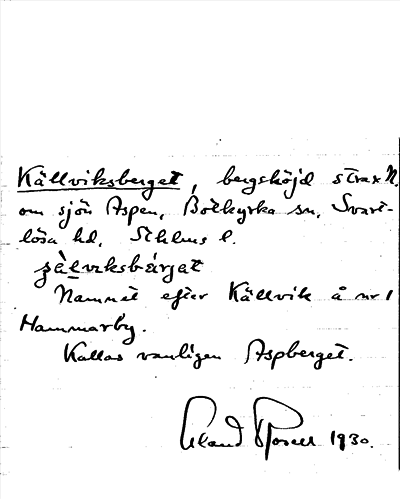 Källviksberget, bergshöjd strax N.
om sjön Aspen, Botkyrka sn, Svart-
lösa hd, Sthlms l.
Namnet efter Källvik å nr 1
Hammarby.
Kallas vanligen Aspberget.
Erland 1930.